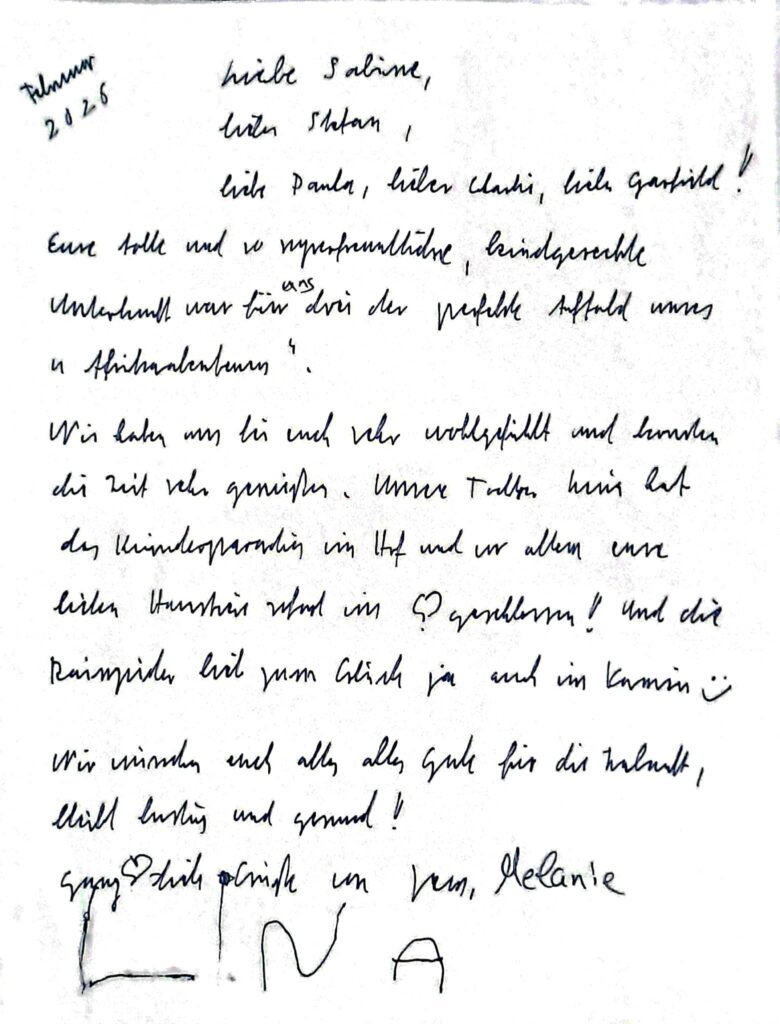 Februar
2026
Liebe Sabine,
lieber Stefan,
liebe Paula, lieber Charlie, lieber Garfield!
Eure tolle und so superfreundliche, kindgerechte
Unterkunft war für uns drei der perfekte Auftakt unseres
"Afrikaabenteuers".
Wir haben uns bei euch sehr wohlgefühlt und konnten
die Zeit sehr genießen. Unsere Tochter hat
das Kinderparadies im Hof und vor allem eure
lieben Haustiere sofort ins ♡ geschlossen! Und die
Rainspider blieb zum Glück ja auch im Kamin :)
Wir wünschen euch alles alles Gute für die Zukunft,
bleibt lustig und gesund!
Ganz ♡liche Grüße von Jens, Melanie
LINA